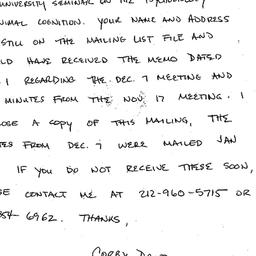 UNIVERSITY SEMINAR ON THE
NIMAL COGNITION. YOUR NAME AND ADDRESS
STILL ON THE MAILING LIST FILE AND
LD HAVE RECEIVED THE MEMO DATED
1 REGARDING THE DEC. 7 MEETING AND
MINUTES FROM THE NOV 17 MEETING. I
OSE A COPY OF THIS MAILING, THE
TES FROM DEC. 7 WERE MAILED JAN
IF YOU DO NOT RECEIVE THESE SOON,
SE CONTACT ME AT 212-960-5715 OR
854-6962. THANKS,